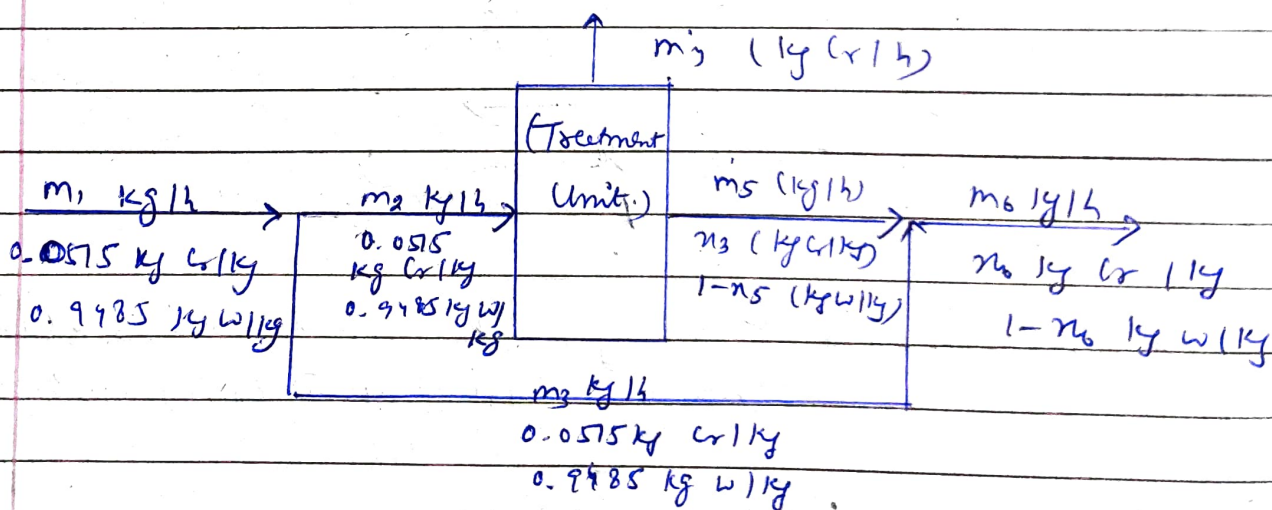 ṁ3 (kg Cr/h)
(Treatment
Unit.)
m1 kg/h
0.0515 kg Cr/kg
0.9485 kg W/kg
m2 kg/h
0.0515
kg Cr/kg
0.9485 kg W/
kg
ṁ5 (kg/h)
x3 (kg Cr/kg)
1-x5 (kg W/kg)
m6 kg/h
x6 kg Cr / kg
1-x6 kg W/kg
m3 kg/h
0.0515 kg Cr/kg
0.9485 kg W/kg